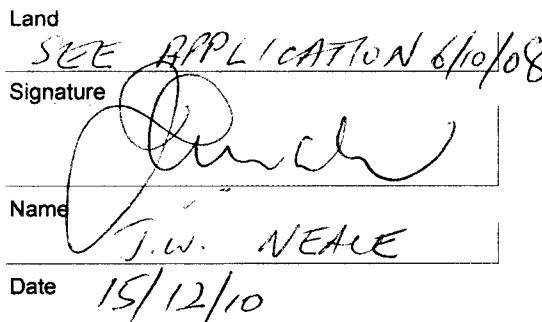 Land
SEE APPLICATION 6/10/08
Signature
Name
J.W. NEALE
Date 15/12/10